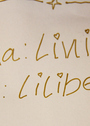 a: Lini
: Lilibe